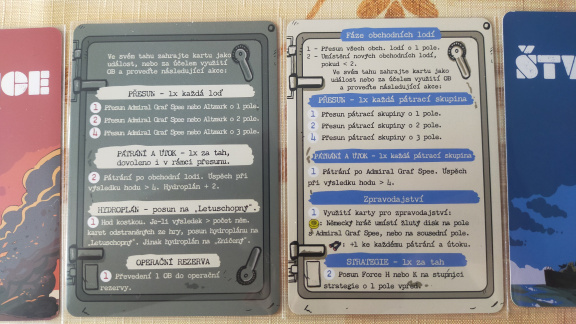 Ve svém tahu zahrajte kartu jako
událost, nebo za účelem využití
OB a proveďte následující akce:
PŘESUN - 1x každá loď
1 Přesun Admiral Graf Spee nebo Altmark o 1 pole.
2 Přesun Admiral Graf Spee nebo Altmark o 2 pole.
4 Přesun Admiral Graf Spee nebo Altmark o 3 pole.
PÁTRÁNÍ A ÚTOK - 1x za tah,
dovoleno i v rámci přesunu.
2 Pátrání po obchodní lodi. Úspěch při
výsledku hodu > 4. Hydroplán + 2.
HYDROPLÁN - posun na „Letuschopný".
1 Hod kostkou. Je-li výsledek > počet něm.
karet odstraněných ze hry, posun hydroplánu na
„Letuschopný". Jinak hydroplán na „Zničený".
OPERAČNÍ REZERVA
1 Převedení 1 OB do operační
rezervy.
Fáze obchodních lodí
1 - Přesun všech obch. lodí o 1 pole.
2 - Umístění nových obchodních lodí,
pokud < 2.
Ve svém tahu zahrajte kartu jako
událost nebo za účelem využití OB
a proveďte následující akce:
PŘESUN - 1x každá pátrací skupina
1 Přesun pátrací skupiny o 1 pole.
2 Přesun pátrací skupiny o 2 pole.
4 Přesun pátrací skupiny o 3 pole.
PÁTRÁNÍ A ÚTOK - 1x každá pátrací skupina
1 Pátrání po Admiral Graf Spee. Úspěch
při výsledku hodu > 4.
Zpravodajství
1 Využití karty pro zpravodajství:
: Německý hráč umístí žlutý disk na pole
s Admiral Graf Spee, nebo na sousední pole.
: +1 ke každému pátrání a útoku.
STRATEGIE - 1x za tah
2 Posun Force H nebo K na stupnici
strategie o 1 pole vpřed
ŠTV